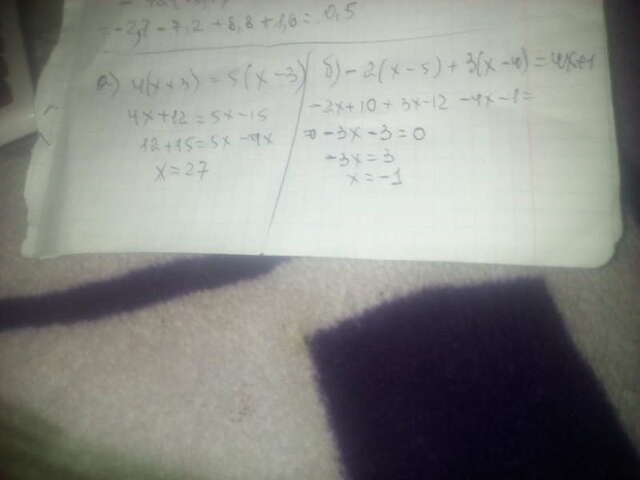 = -2,7 - 7,2 + 8,8 + 1,6 = 0,5
а) 4(x+3) = 5(x-3)
4x+12=5x-15
12+15=5x-4x
x=27
б) -2(x-5)+3(x-4)=4x+1
-2x+10+3x-12-4x-1=
= -3x-3=0
-3x=3
x=-1